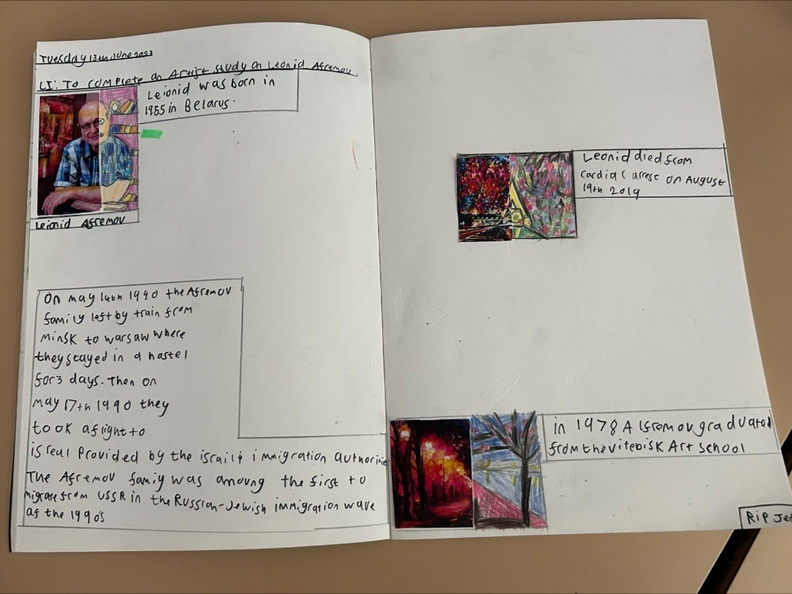 Tuesday 13th June 2023
LI: To complete an Artist study on Leonid Afremov
Leionid was born in
1955 in Belarus.
Leionid Afremov
On may 14th 1990 the Afremov
family left by train from
minsk to warsaw where
they stayed in a hostel
for 3 days. Then on
may 17th 1990 they
took a flight to
isreal Provided by the israili immigration authorities
The Afremov famiy was amoung the first to
migrate from USSR in the Russian-Jewish immigration wave
of the 1990's
Leonid died from
cardiac arrest on August
19th 2019
in 1978 Alfromov graduated
from the vitebisk Art school
Rip Je